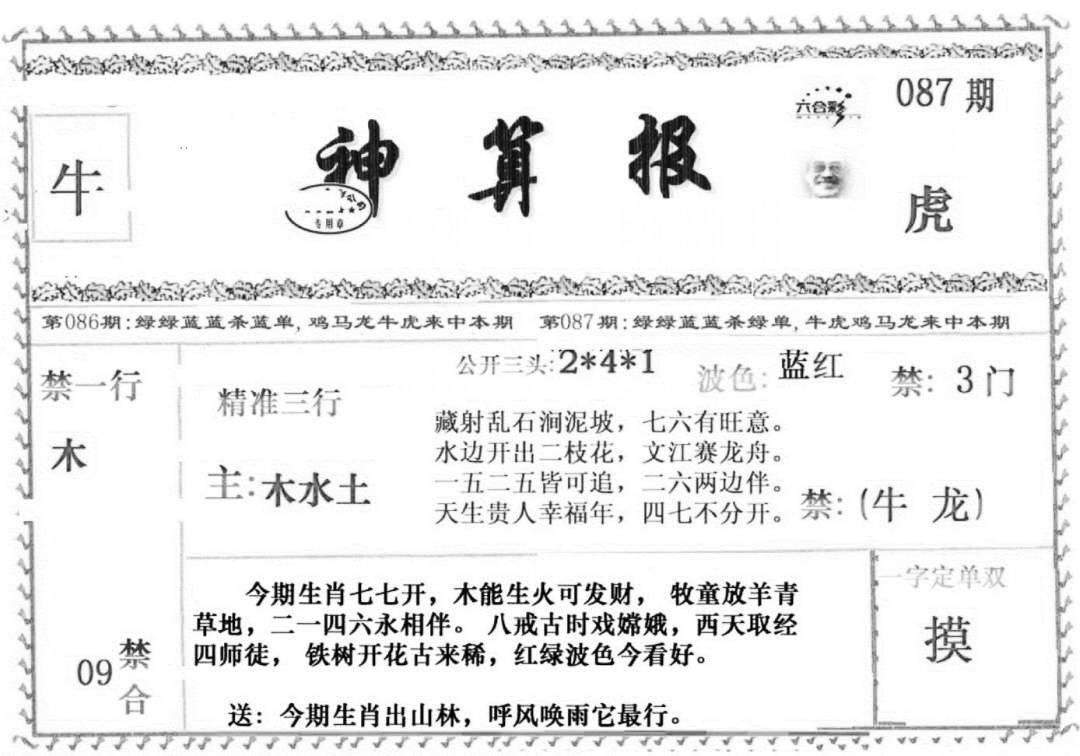 087 期
六合彩
牛
神算报
专用章
虎
第086期:绿绿蓝蓝杀蓝单,鸡马龙牛虎来中本期
第087期:绿绿蓝蓝杀绿单,牛虎鸡马龙来中本期
禁一行
木
精准三行
主:木水土
公开三头:2*4*1
波色:蓝红
禁: 3门
藏射乱石涧泥坡，七六有旺意。
水边开出二枝花，文江赛龙舟。
一五二五皆可追，二六两边伴。
天生贵人幸福年，四七不分开。
禁:(牛 龙)
09禁合
今期生肖七七开，木能生火可发财， 牧童放羊青
草地，二一四六永相伴。 八戒古时戏嫦娥，西天取经
四师徒， 铁树开花古来稀，红绿波色今看好。
送：今期生肖出山林，呼风唤雨它最行。
一字定单双
摸